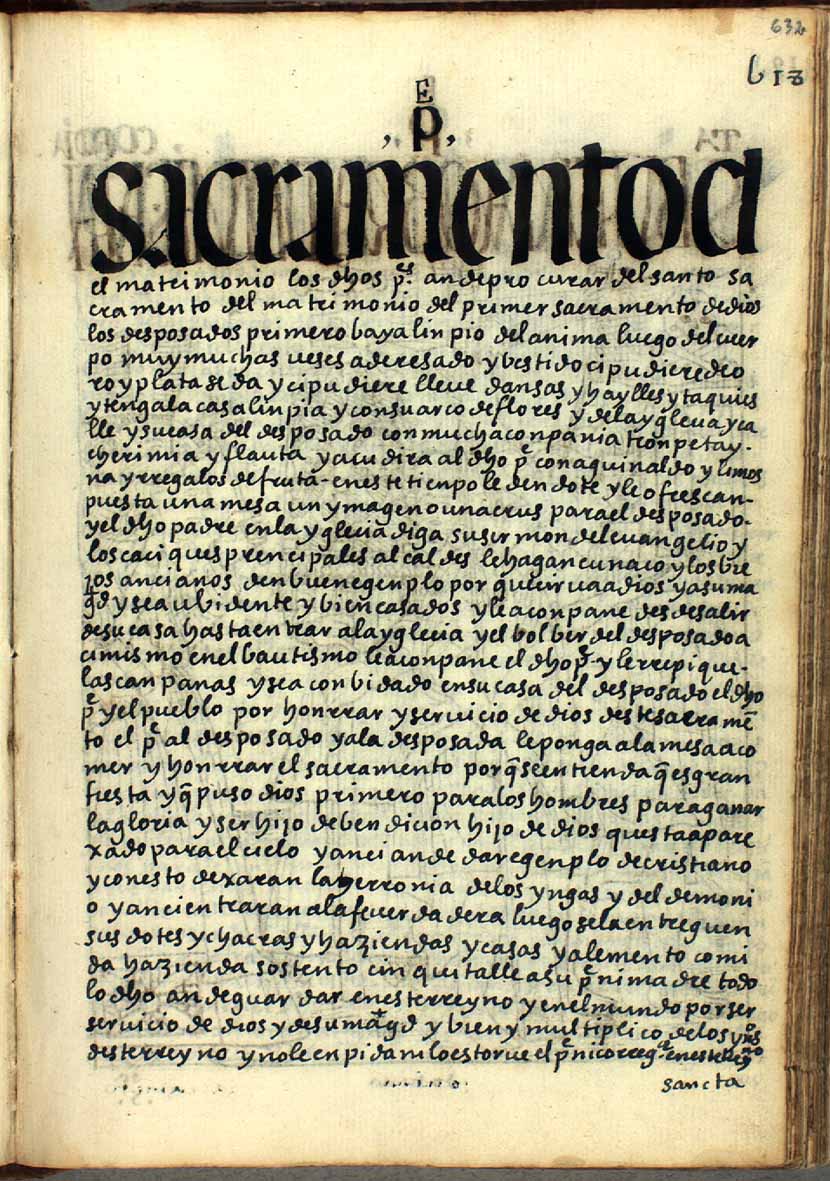 632
613
E
, p ,
sacramento d
el matrimonio los dhos pes. an de pro curar del santo sa
cramento del matrimonio del primer sacramento de dios
los desposados primero baya linpio del anima luego del cuer
po muy muchas ueses aderesado y bestido ci pudiere de o
ro y plata seda y ci pudiere lleue dansas y haylles y taquies
y tengala casa linpia y con su arco de flores y de la yglecia y ca
lle y su casa del desposado con mucha conpania tronpeta y
cherimia y flauta y acudira al dho pe con aguinaldo y limos
na y rregalos de fruta - en este tienpo le den dote y le ofrescan -
puesta una mesa un ymagen o una crus para el desposado -
y el dho padre en la yglecia diga su sermon del euangelio y
los caciques prencipales alcaldes le hagan cunaco y los bie
jos ancianos den buen egenplo por q uecirua a dios y a su ma
gd y sea ubidente y bien casados y le aconpane desde salir
de su casa hasta entrar a la yglecia y el bolber del desposado a
ci mismo en el bautismo le aconpane el dho pe y le rrepique -
las canpanas y sea conbidado en su casa del desposado el dho
pe y el pueblo por honrrar y seruicio de dios deste sacramē
to el pe al desposado y a la desposada le ponga a la mesa a co
mer y honrrar el sacramento porq̄ se entienda q̄ es gran
fiesta y q̄ puso dios primero para los hombres para ganar
la gloria y ser hijo de bendicion hijo de dios questa apare
xado para el cielo y anci an de dar egenplo de cristiano
y con esto dexaran la serronia de los yngas y del demoni
o y anci entraran a la fe uerdadera luego se la entreguen
sus dotes y chacras y haziendas y casas y alemento comi
da hazienda sostento cin quitalle a su pe ni madre todo
lo dho an de guardar en este rreyno y en el mundo por ser
seruicio de dios y de su magd y bien y multiplico de los ynos
deste rreyno y no le enpida ni lo estorue el pe ni corregor en este rreyno
sancta